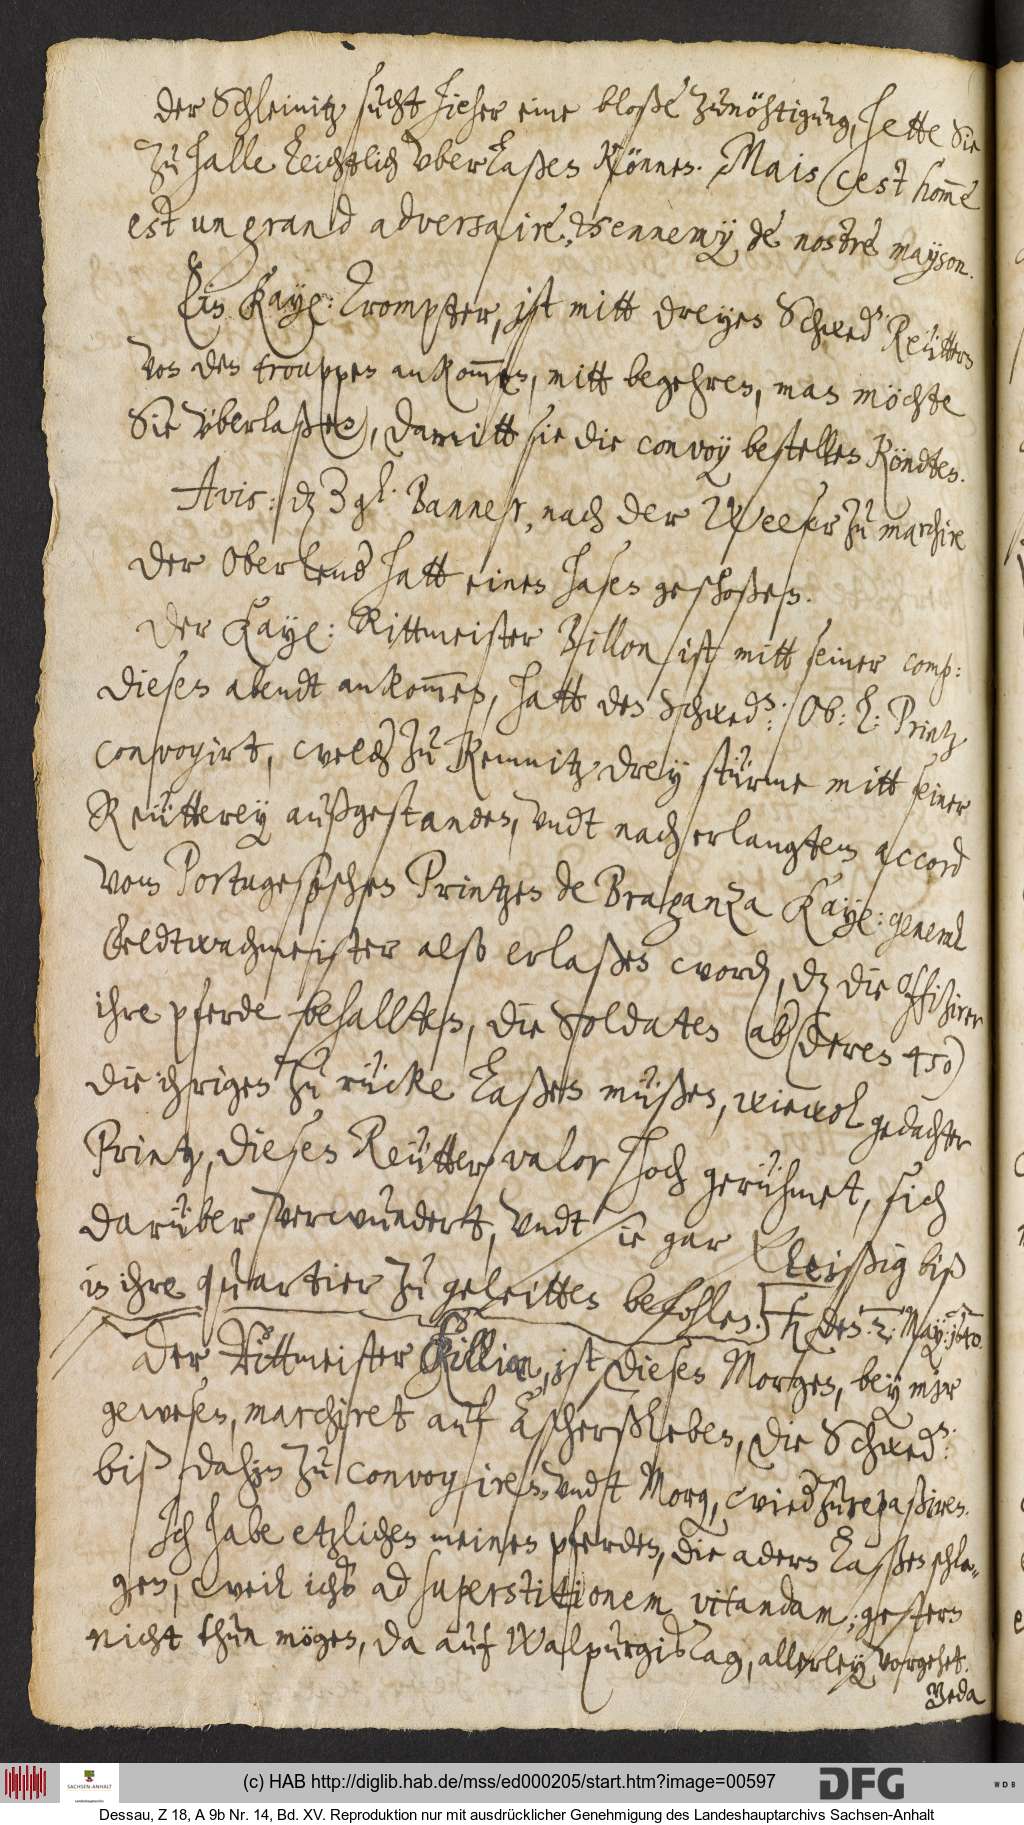 der Schleinitz sucht hieher eine bloße zunöhtigung, hette Sie
zu Halle leichtlich uberlaßen können. Mais cest homme
est un grand adversaire, & ennemy de nostre mayson.
Ein Kayß: Trompter, ist mitt dreyen Schwed: Reüttern
von den trouppen ankommen, mitt begehren, man möchte
Sie überlaßen, damitt sie die convoy bestellen köndten.
Avis: dz Banner, nach der Weeser zu marchire
der Oberlend hatt einen hasen geschoßen.
Der Kayß: Rittmeister Billon ist mitt seiner comp:
diesen abendt ankommen, hatt den Schwed: Ob: L: Printz
convoyirt, welch zu Kemnitz drey stürme mitt seiner
Reütterey außgestanden, undt nach erlangtem accord
vom Portugesischen Printzen de Braganza Kayß: general
Feldtwachmeister also erlaßen word, dz die Offizirer
ihre pferde behallten, die Soldaten ab (deren 450)
die ihrigen zu rücke laßen müßen, wiewol gedachter
Printz, dieser Reütter valor hoch gerühmet, sich
darüber verwundert, undt sie gar fleißig biß
in ihre quartier zu geleitten befohlen. ♄ den: 2: May: 1640.
Der Rittmeister Billion, ist dieses Morgen, bey mir
gewesen, marchiret auf Ascherßleben, die Schwed:
biß dahin zu convoyiren, undt Morg, wied zu repaßiren.
Ich habe etzlichen meinen pferden, die adern laßen schla-
gen, weil ichs ad superstitionem vitandam, gestern
nicht thun mögen, da auf Walpurgistag, allerley vorgehet.
Beda
(c) HAB http://diglib.hab.de/mss/ed000205/start.htm?image=00597
SACHSEN-ANHALT
DFG
WDB
Dessau, Z 18, A 9b Nr. 14, Bd. XV. Reproduktion nur mit ausdrücklicher Genehmigung des Landeshauptarchivs Sachsen-Anhalt